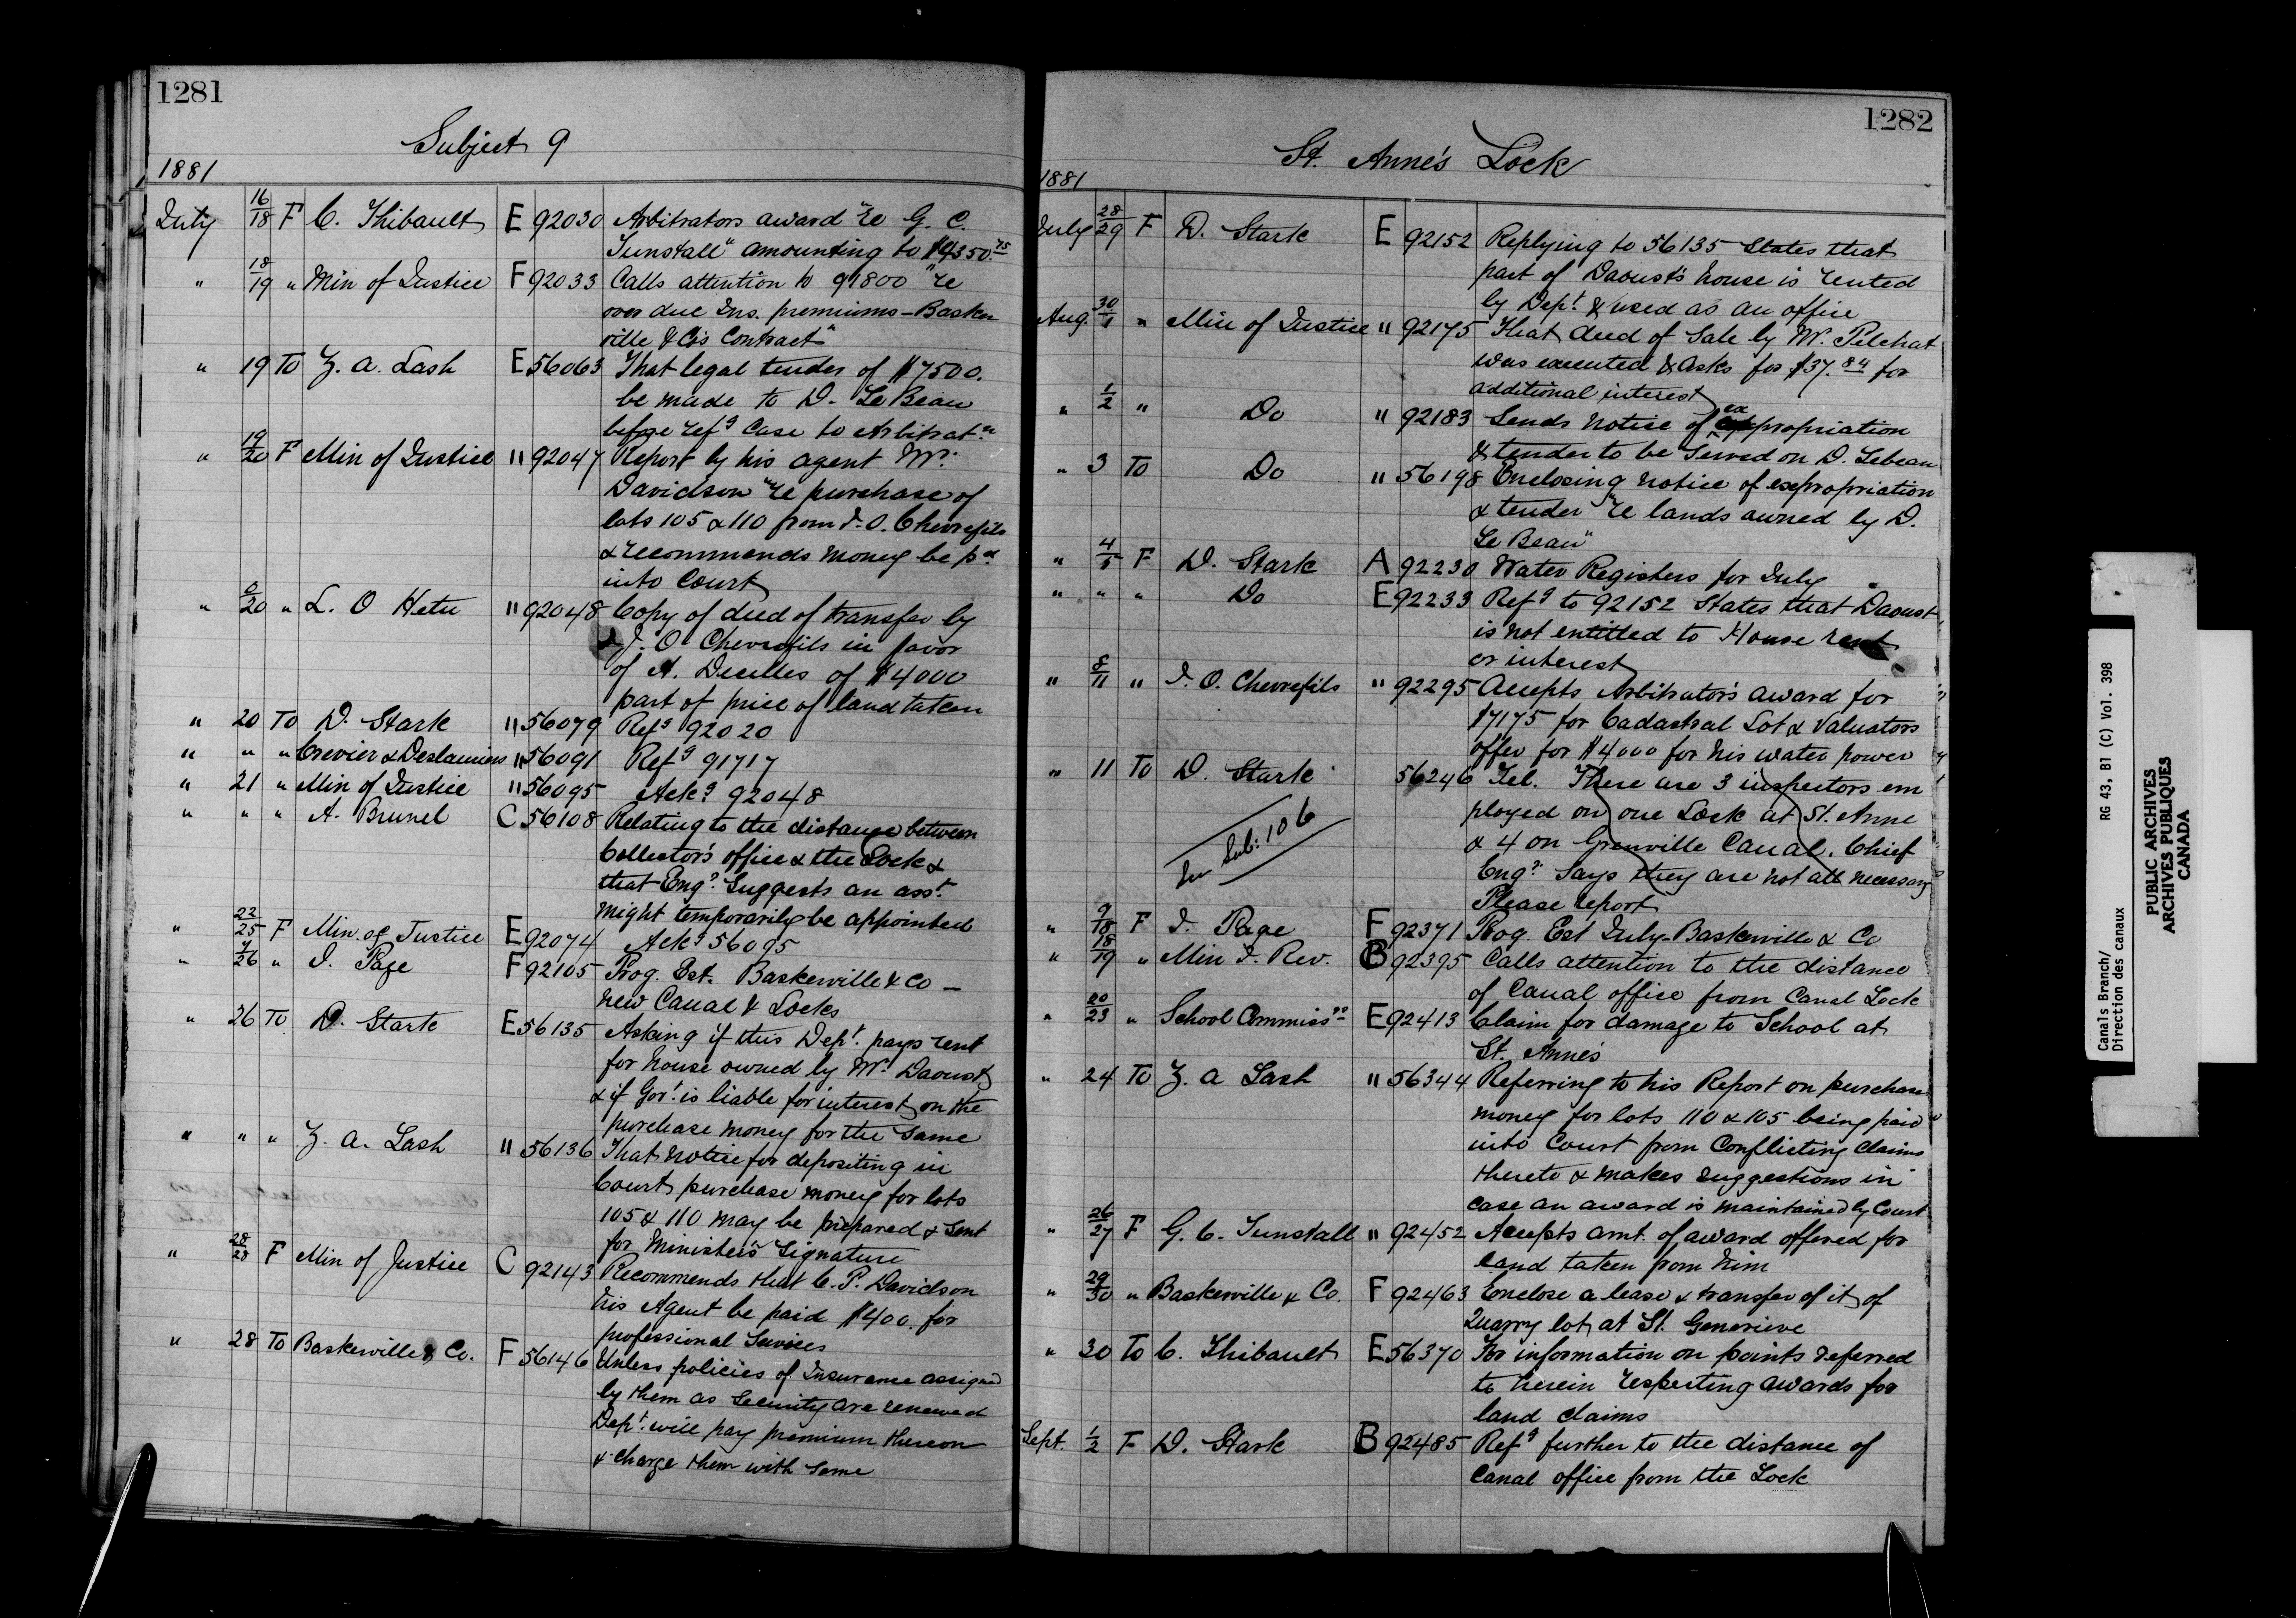 1281
Subject 9
1881
July 16/18 F C. Thibault E 92030 Arbitrators award "re G. C.
Tunstall" amounting to $9350.75
" 18/19 " Min of Justice F 92033 Calls attention to 91800 "re
over due Ins. premiums - Basker
ville & Co's Contract"
" 19 To Z. A. Lash E 56063 That legal tender of $7500.
be made to D. Le Beau
before refg Case to Arbitratn
" 19/20 F Min of Justice " 92047 Report by his agent Mr.
Davidson "re purchase of
lots 105 & 110 from J. O. Chevrefils
& recommends money be pd
into Court
" 9/20 " L. O Hetu " 92048 Copy of deed of transfer by
J. O Chevrefils in favor
of A. Decelles of $4000
part of price of land taken
" 20 To D. Stark " 56079 Refg 92020
" " " Crevier & Deslauriers " 56091 Refg 91717
" 21 " Min of Justice " 56095 Ackg 92048
" " " A. Brunel C 56108 Relating to the distance between
Collector's office & the Lock &
that Engr. Suggests an asst.
might temporarily be appointed
" 22/25 F Min. of Justice E 92074 Ackg 56095
" 9/26 " J. Page F 92105 Prog. Est. Baskerville & Co -
new Canal & Locks
" 26 To D. Stark E 56135 Asking if this Dept. pays rent
for house owned by Mr. Daoust
& if Govt. is liable for interest on the
purchase money for the same
" " " Z. A. Lash " 56136 That notice for depositing in
Court purchase money for lots
105 & 110 may be prepared & sent
for Minister's Signature
" 28/28 F Min of Justice C 92143 Recommends that C. P. Davidson
his Agent be paid $400. for
professional Services
" 28 To Baskerville & Co. F 56146 Unless policies of Insurance assigned
by them as Security are renewed
Dept. will pay premium thereon
& charge them with same
1282
St. Anne's Lock
1881
July 28/29 F D. Stark E 92152 Replying to 56135 States that
part of Daoust's house is rented
by Dept. & used as an office
Aug. 30/1 " Min of Justice " 92175 That deed of Sale by Mr. Pilchat
was executed & asks for $37.84 for
additional interest
" 1/2 " Do " 92183 Sends notice of expropriation
& tender to be Served on D. Lebeau
" 3 To Do " 56198 Enclosing notice of expropriation
& tender "re lands owned by D.
Le Beau"
" 4/5 F D. Stark A 92230 Water Registers for July
" " " Do E 92233 Refg to 92152 States that Daoust
is not entitled to House rent
or interest
" 8/11 " J. O. Chevrefils " 92295 Accepts Arbitrator's award for
$7175 for Cadastral Lot & Valuators
offer for $4000 for his water power
" 11 To D. Stark 56246 Tel. There are 3 inspectors em
ployed on one Lock at St. Anne
& 4 on Grenville Canal. Chief
Engr. Says they are not all necessary
Please report
See Sub: 106
" 9/18 F J. Page F 92371 Prog. Est July Baskerville & Co
" 18/19 " Min I. Rev. B 92395 Calls attention to the distance
of Canal office from Canal Lock
" 20/23 " School Commissrs E 92413 Claim for damage to School at
St. Anne's
" 24 To Z. A Lash " 56344 Referring to his Report on purchase
money for lots 110 & 105 being paid
into Court from Conflicting Claims
thereto & makes suggestions in
case an award is maintained by Court
" 26/27 F G. C. Tunstall " 92452 Accepts amt. of award offered for
land taken from him
" 29/30 " Baskerville & Co. F 92463 Enclose a lease & transfer of it of
Quarry lot at St. Genevieve
" 30 To C. Thibault E 56370 For information on points referred
to herein respecting awards for
land claims
Sept. 1/2 F D. Stark B 92485 Refg further to the distance of
Canal office from the Lock
Canals Branch/ RG 43, B1 (C) Vol. 398
Direction des canaux
PUBLIC ARCHIVES
ARCHIVES PUBLIQUES
CANADA